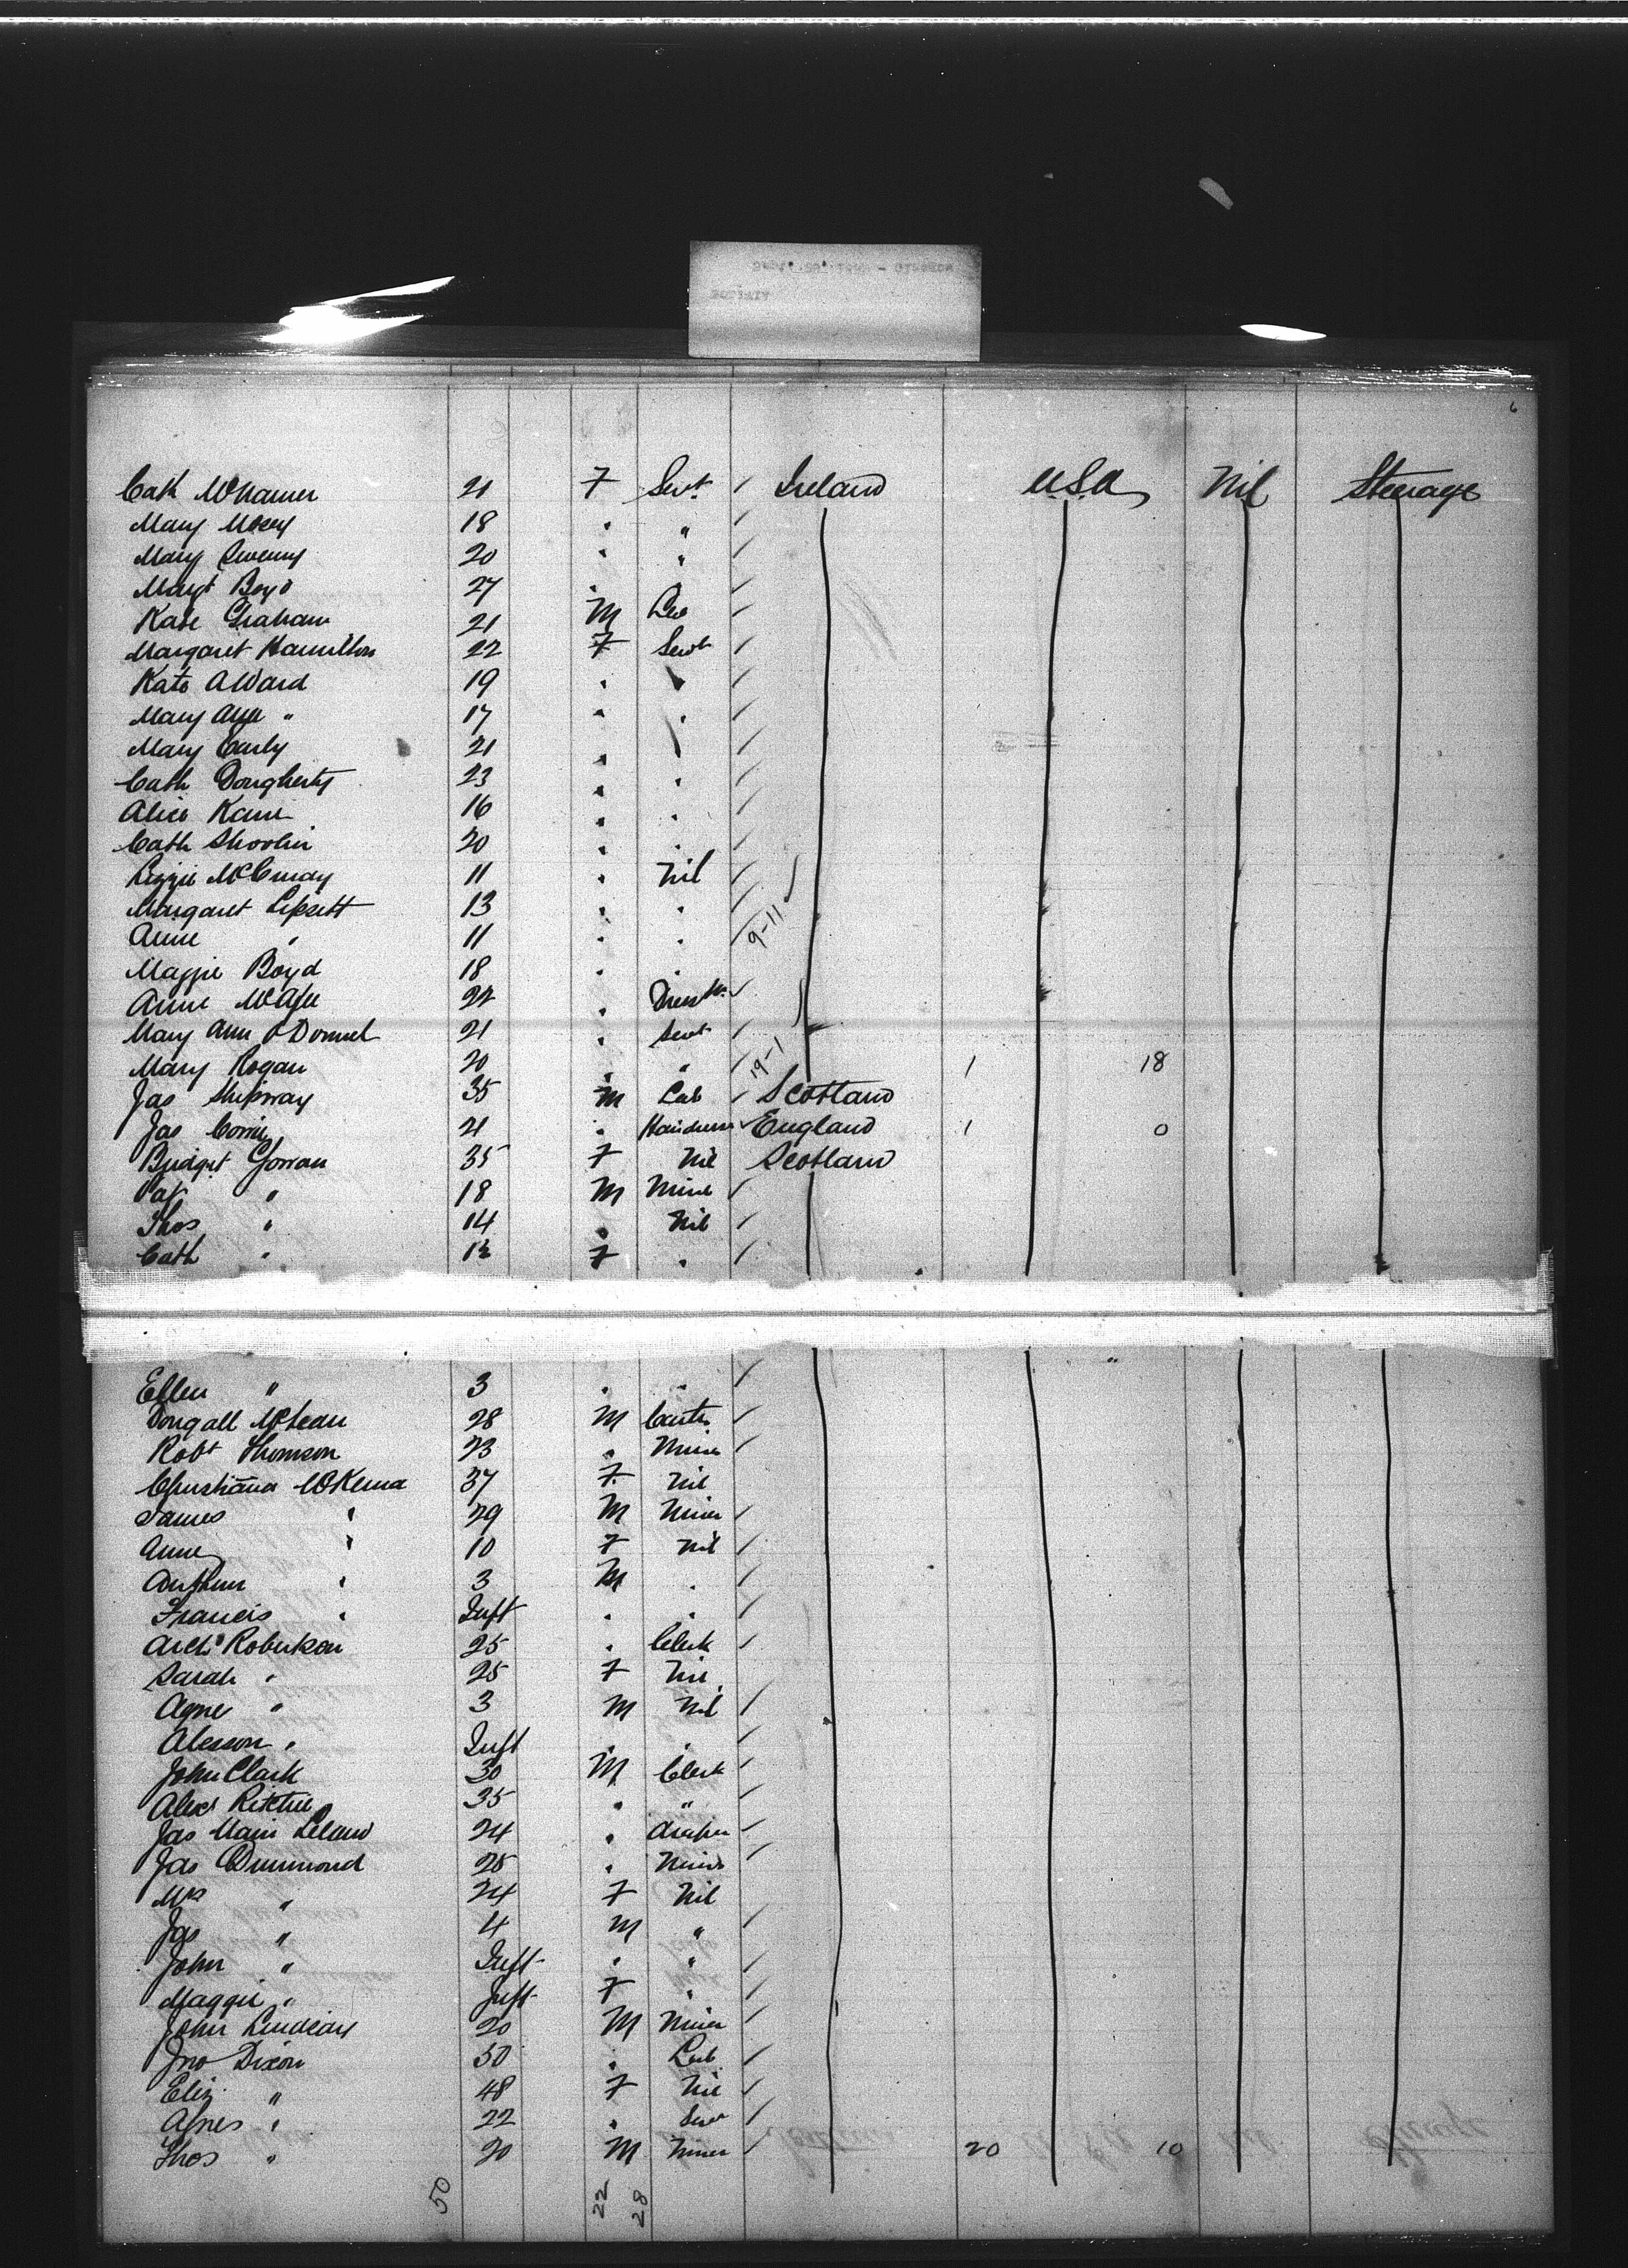 6
Cath 21 F Servt Ireland U.S.A. Nil Steerage
Mary 18 " "
Mary Sweeny 20 " "
Margt Boyd 27 "
Kate Graham 21 M Lab
Margaret Hamilton 22 F Servt
Kate A Ward 19 "
Mary Ann " 17 " "
Mary Early 21 "
Cath Dougherty 23 " "
Alice Kane 16 " "
Cath Shovlin 20 " "
Lizzie 11 " Nil
Margaret Lipsett 13 " "
Anne " 11 " " 9-11
Maggie Boyd 18 " "
Anne McAfee 22 "
Mary Ann O'Donnel 21 " Servt
Mary Rogan 20 " " 19-1 1 18
Jas Shipway 35 M Lab Scotland
Jas Corrie 21 " England 1 0
Bridget Gowan 35 F Nil Scotland
Pat " 18 M Miner
Thos " 14 " Nil
Cath " 12 F "
Ellen " 3 " "
Dougall McLean 28 M Carter
Robt Thomson 23 " Miner
Christiana McKenna 37 F Nil
James " 29 M Miner
Anne " 10 F Nil
Arthur " 3 M "
Francis " Inft " "
Archd Robertson 25 " Clerk
Sarah " 25 F Nil
Agnes " 3 M Nil
" Inft " "
John Clark 30 M Clerk
Alexr Ritchie 35 " "
Jas Main 24 " Draper
Jas Drummond 25 " Miner
Mrs " 24 F Nil
Jas " 4 M "
John " Inft " "
Maggie " Inft F "
John 20 M Miner
Jno Dixon 50 " Lab
Eliz " 48 F Nil
Agnes " 22 " Serv
Thos " 20 M Miner 20 10
50 22 28